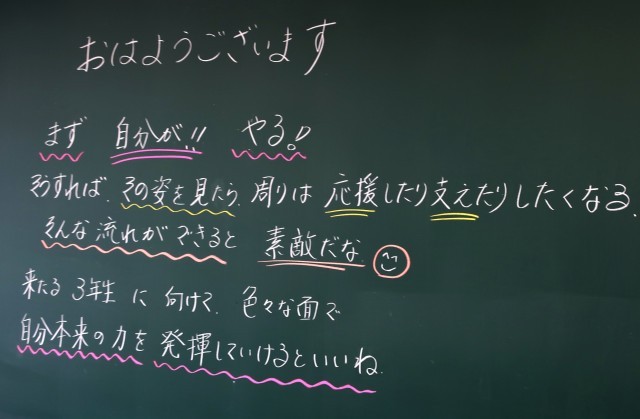 おはようございます
まず 自分が!! やる!
そうすれば、その姿を見たら、周りは 応援したり支えたりしたくなる。
そんな流れができると 素敵だな
来たる 3年生 に 向けて、色々な面で
自分本来の力を 発揮していけるといいね。